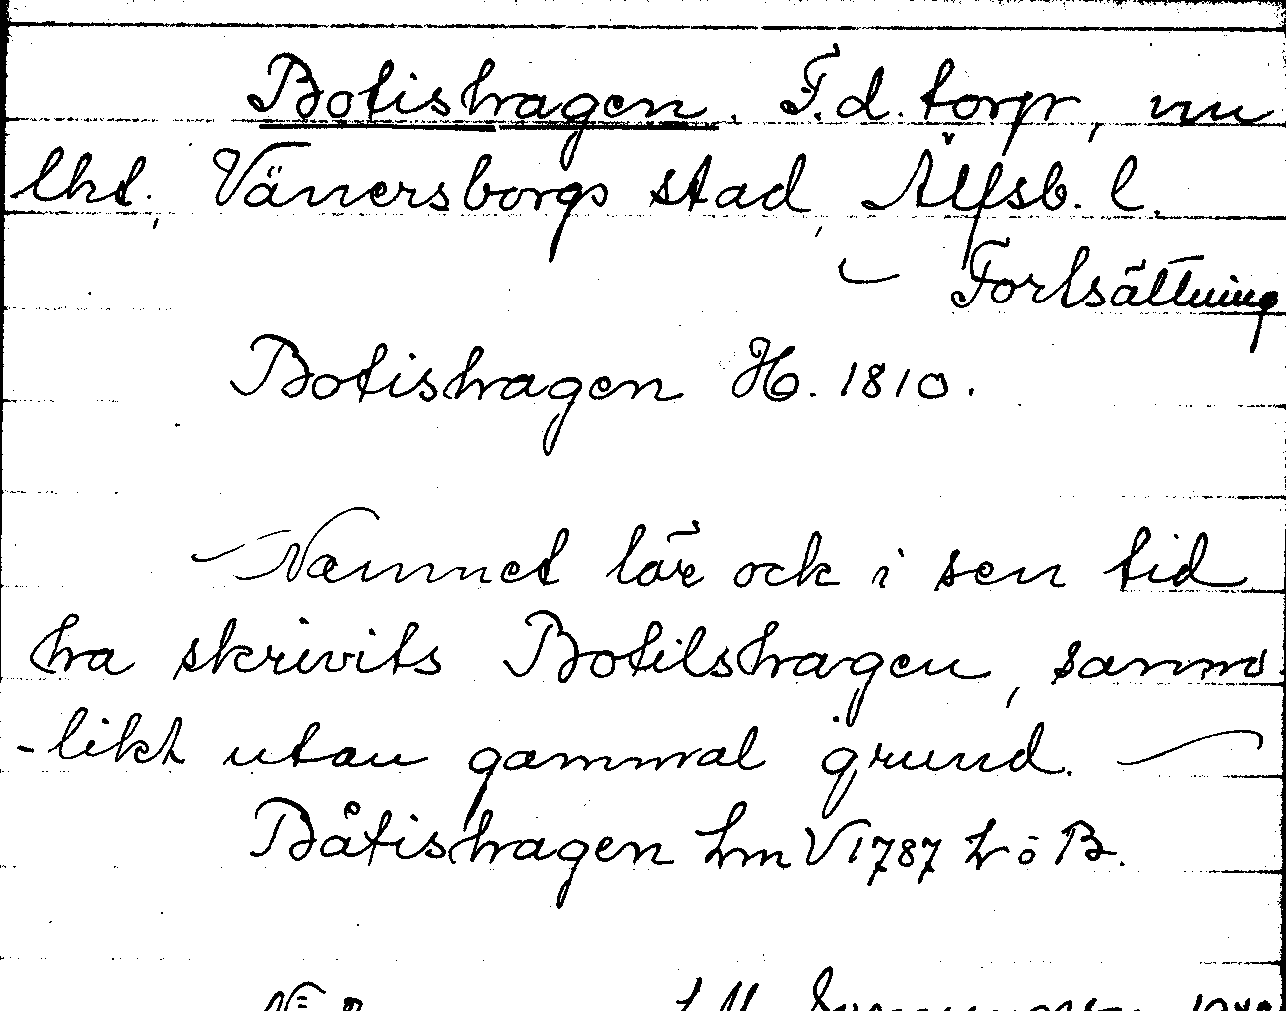 Botishagen. F.d. torp, nu
lht., Vänersborgs stad, Älfsb. l.
Fortsättning
Botishagen H. 1810.
Namnet lär ock i sen tid
ha skrivits Botilshagen, sanno
-likt utan gammal grund.
Båtishagen hm V 1787 h ö B.